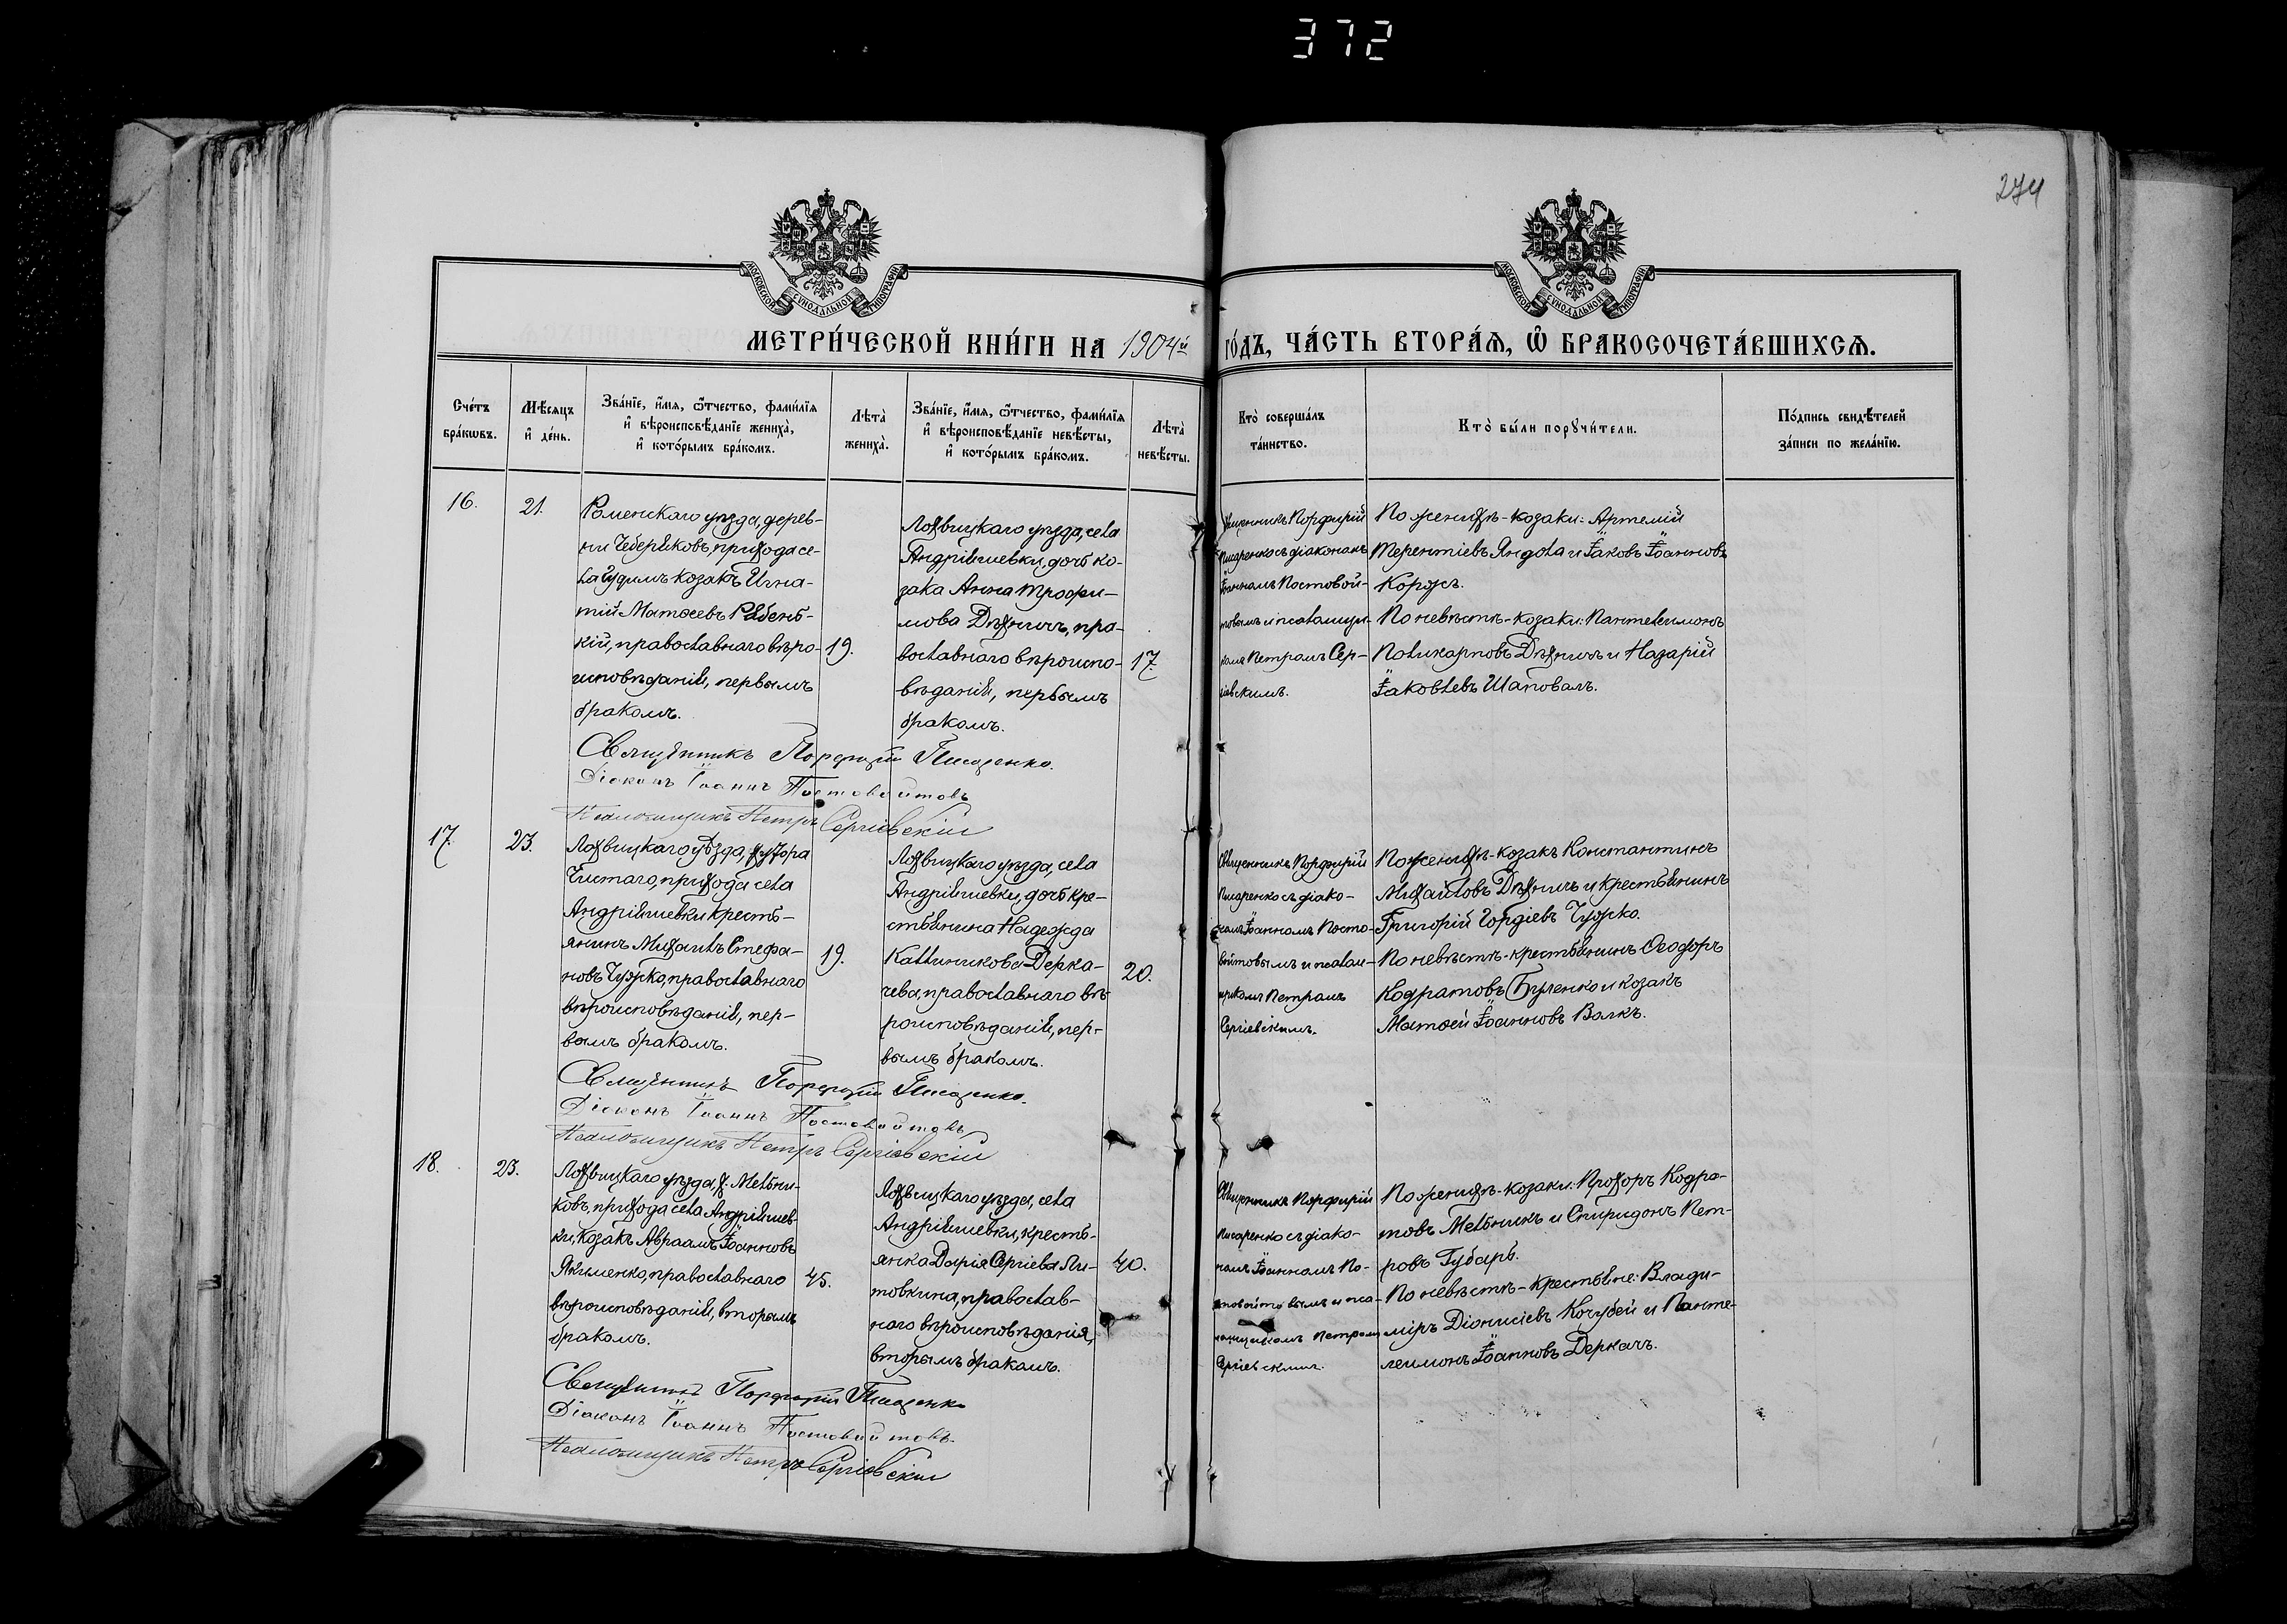 372
274
МОСКОВСКОЙ СУНОДАЛЬНОЙ ТИПОГРАФІИ
МОСКОВСКОЙ СУНОДАЛЬНОЙ ТИПОГРАФІИ
МЕТРИ́ЧЕСКОЙ КНИ́ГИ НА 1904й го́дъ, ча́сть втора́ѧ, ѡ҆ бракосочета́вшихсѧ.
Сче́тъ бра́кѡвъ.
Мѣ́сяцъ и҆ де́нь.
Зва́нїе, и҆́мя, ѻ҆́тчество, фами́лїя и҆ вѣроисповѣ́данїе жениха̀, и҆ кото́рымъ бра́комъ.
Лѣ́та̀ жениха̀.
Зва́нїе, и҆́мя, ѻ҆́тчество, фами́лїя и҆ вѣроисповѣ́данїе невѣ́сты, и҆ кото́рымъ бра́комъ.
Лѣ́та̀ невѣ́сты.
Кто̀ соверша́лъ та́инство.
Кто̀ бы́ли порꙋчи́тели.
По́дпись свидѣ́телей за́писи по жела́нїю.
16.
21.
Роменскаго уѣзда, дерев-
ни Чеберяковъ, прихода се-
ла Чудимъ козакъ Игна-
тій Матѳеевъ
кій, православнаго вѣро-
исповѣданія, первымъ
бракомъ.
19.
Лохвицкаго уѣзда, села
Андріяшевки, дочь ко-
зака Анна Трофи-
мова Дѣхничъ, пра-
вославнаго вѣроиспо-
вѣданія, первымъ
бракомъ.
17.
Священникъ Порфирій
Писаренко съ діакономъ
Іоанномъ Постовой-
товымъ и псаломщи-
комъ Петромъ Сер-
гіевскимъ.
По женихѣ - козаки: Артемій
Терентіевъ Янгола и Іаковъ Іоанновъ
Коржъ.
По невѣстѣ - козаки: Пантелеимонъ
Поликарповъ Дѣхничъ и Назарій
Іаковлевъ Шаповалъ.
Священникъ Порфирій Писаренко.
Діаконъ Іоаннъ Постовойтовъ
Псаломщикъ Петръ Сергіевскій
17.
23.
Лохвицкаго уѣзда, хутора
Чистаго, прихода села
Андріяшевки кресть-
янинъ Михаилъ Стефа-
новъ Чуйко, православнаго
вѣроисповѣданія, пер-
вымъ бракомъ.
19.
Лохвицкаго уѣзда, села
Андріяшевки, дочь кре-
стьянина Надежда
Каллиникова Дерка-
чева, православнаго вѣ-
роисповѣданія, пер-
вымъ бракомъ.
20.
Священникъ Порфирій
Писаренко съ діако-
номъ Іоанномъ Посто-
войтовымъ и псалом-
щикомъ Петромъ
Сергіевскимъ.
По женихѣ - козакъ Константинъ
Михайловъ Дѣхничъ и крестьянинъ
Григорій Гордіевъ Чуйко.
По невѣстѣ - крестьянинъ Ѳеодоръ
Кодратовъ Буленко и козакъ
Матѳей Іоанновъ Волкъ.
Священникъ Порфирій Писаренко.
Діаконъ Іоаннъ Постовойтовъ
Псаломщикъ Петръ Сергіевскій
18.
23.
Лохвицкаго уѣзда, х. Мельни-
ковъ, прихода села Андріяшев-
ки, козакъ Авраамъ Іоанновъ
Якименко, православнаго
вѣроисповѣданія, вторымъ
бракомъ.
45.
Лохвицкаго уѣзда, села
Андріяшевки, кресть-
янка Дарія Сергіева Ли-
товкина, православ-
наго вѣроисповѣданія,
вторымъ бракомъ.
40.
Священникъ Порфирій
Писаренко съ діако-
номъ Іоанномъ По-
стовойтовымъ и пса-
ломщикомъ Петромъ
Сергіевскимъ.
По женихѣ - козаки: Прохоръ Кодра-
товъ Мельникъ и Спиридонъ Пет-
ровъ Губарь.
По невѣстѣ - крестьяне: Влади-
міръ Діонисіевъ Кочубей и Панте-
леимонъ Іоанновъ Деркачъ.
Священникъ Порфирій Писаренко
Діаконъ Іоаннъ Постовойтовъ.
Псаломщикъ Петръ Сергіевскій